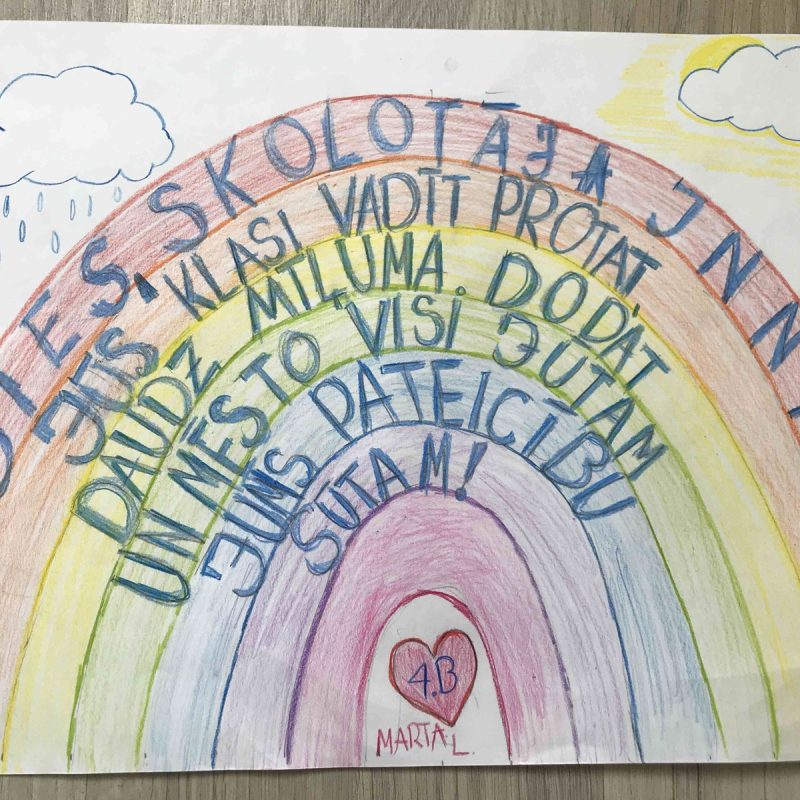 DIES, SKOLOTĀJA INN
JŪS KLASI VADĪT PROTAT,
DAUDZ MĪĻUMA DODAT
UN MĒS TO VISI JŪTAM
JUMS PATEICĪBU
SŪTAM!
4.B
MARTA L.